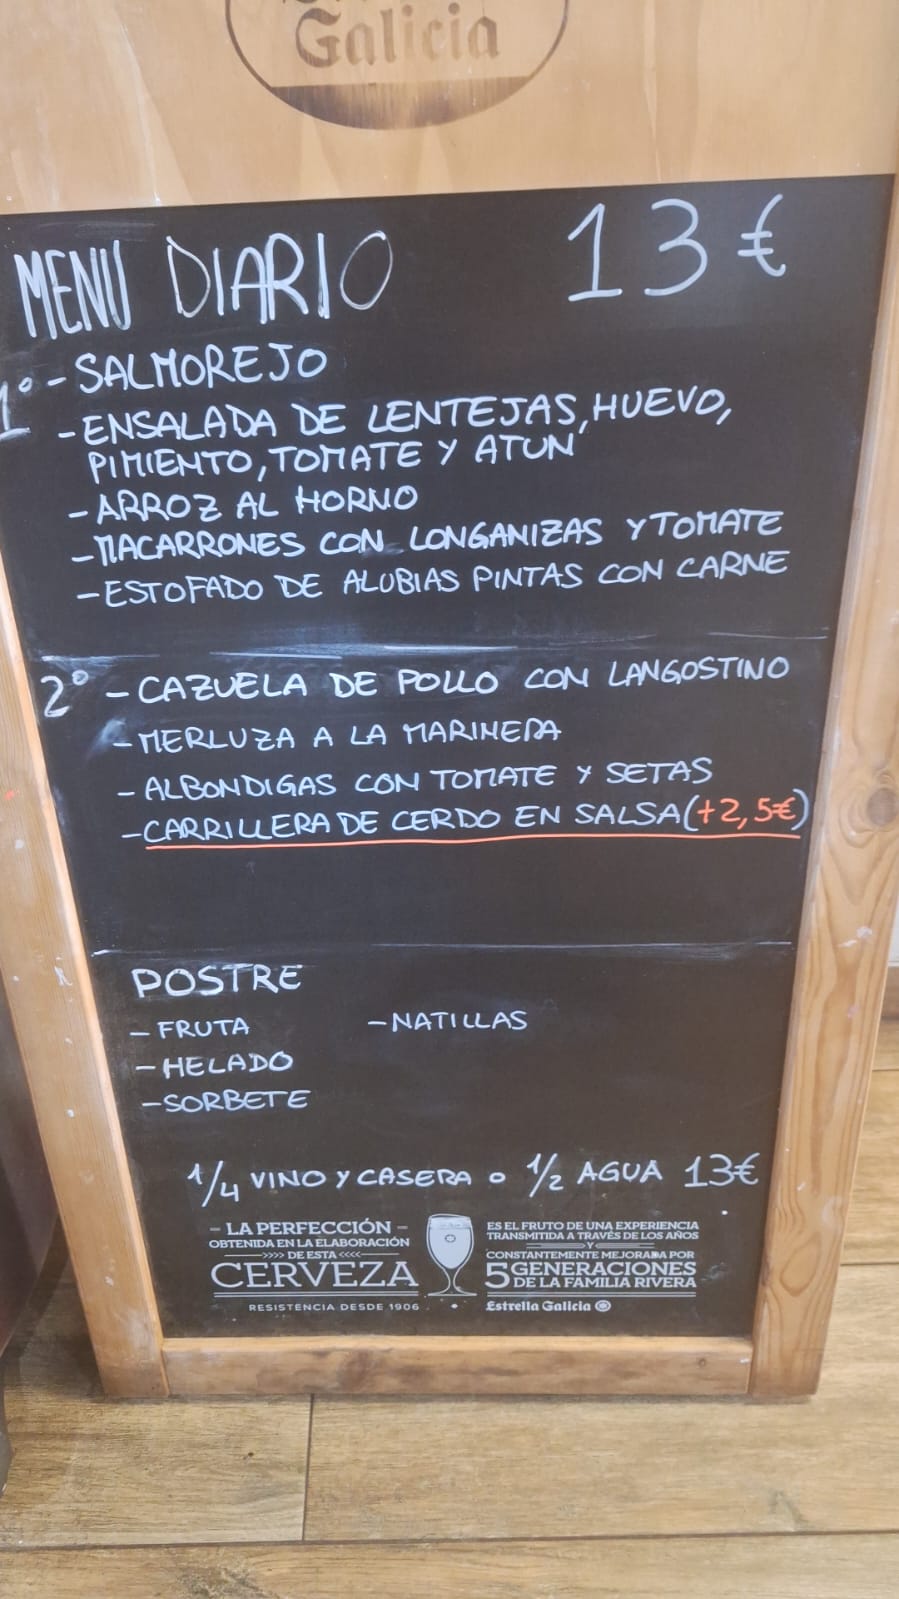 Galicia
MENU DIARIO 13€
1º - SALMOREJO
- ENSALADA DE LENTEJAS, HUEVO,
PIMIENTO, TOMATE Y ATUN
- ARROZ AL HORNO
- MACARRONES CON LONGANIZAS Y TOMATE
- ESTOFADO DE ALUBIAS PINTAS CON CARNE
2º - CAZUELA DE POLLO CON LANGOSTINO
- MERLUZA A LA MARINERA
- ALBONDIGAS CON TOMATE Y SETAS
- CARRILLERA DE CERDO EN SALSA (+2,5€)
POSTRE
- FRUTA - NATILLAS
- HELADO
- SORBETE
1/4 VINO Y CASERA o 1/2 AGUA 13€
- LA PERFECCIÓN -
OBTENIDA EN LA ELABORACIÓN
>>>> DE ESTA <<<<
CERVEZA
RESISTENCIA DESDE 1906
ES EL FRUTO DE UNA EXPERIENCIA
TRANSMITIDA A TRAVÉS DE LOS AÑOS
Y
CONSTANTEMENTE MEJORADA POR
5 GENERACIONES
DE LA FAMILIA RIVERA
Estrella Galicia